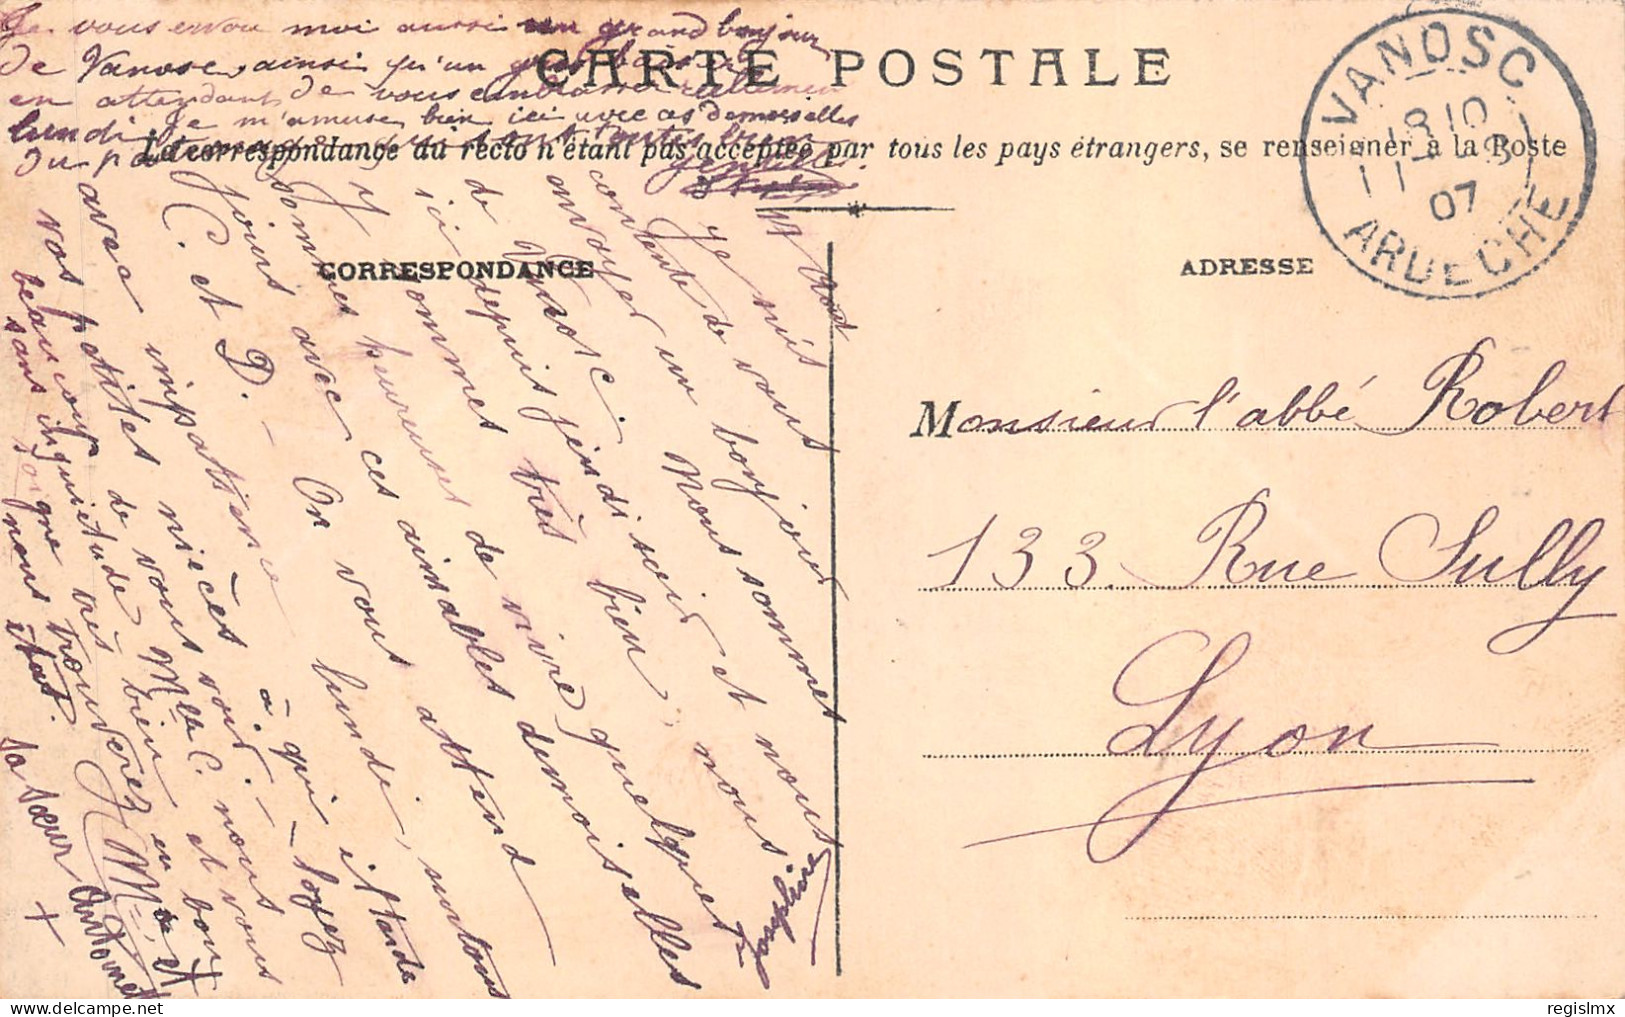 Je vous envoi moi aussi un grand bonjour
de Vanosc, ainsi qu'un
en attendant de vous
lundi Je m'amuse bien ici avec ces demoiselles
CARTE POSTALE
La correspondance au recto n'étant pas acceptée par tous les pays étrangers, se renseigner à la Poste
VANOSC
18 10
11
07
ARDECHE
CORRESPONDANCE
ADRESSE
Monsieur l'abbé Robert
133. Rue Sully
Lyon
Je suis
contente de vous
envoyer un bonjour
de Vanosc. Nous sommes
ici depuis jeudi soir et nous
y sommes très bien, nous
sommes heureuses de vivre quelques
jours avec ces aimables demoiselles
C. et D. - On vous attend
avec impatience lundi, surtout
vos petites nièces à qui il tarde
beaucoup de vous voir. - Soyez
sans inquiétude Mlle C. nous
soigne très bien et vous
nous trouverez en bon
état.
Sa sœur
regislmx